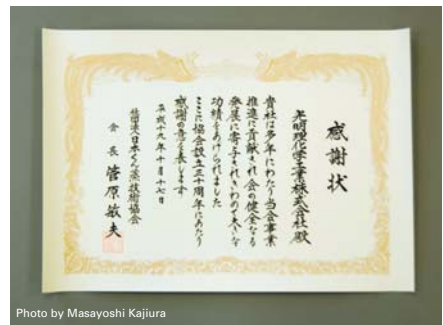 感謝状
光明理化学工業株式会社殿
貴社は多年にわたり当会事業
推進に貢献され会の健全なる
発展に寄与されきわめて大きな
功績をあげられました
ここに協会設立三十周年にあたり
感謝の意を表します
平成十九年十月十七日
社団法人日本くん蒸技術協会
会長 菅原敏夫
Photo by Masayoshi Kajiura